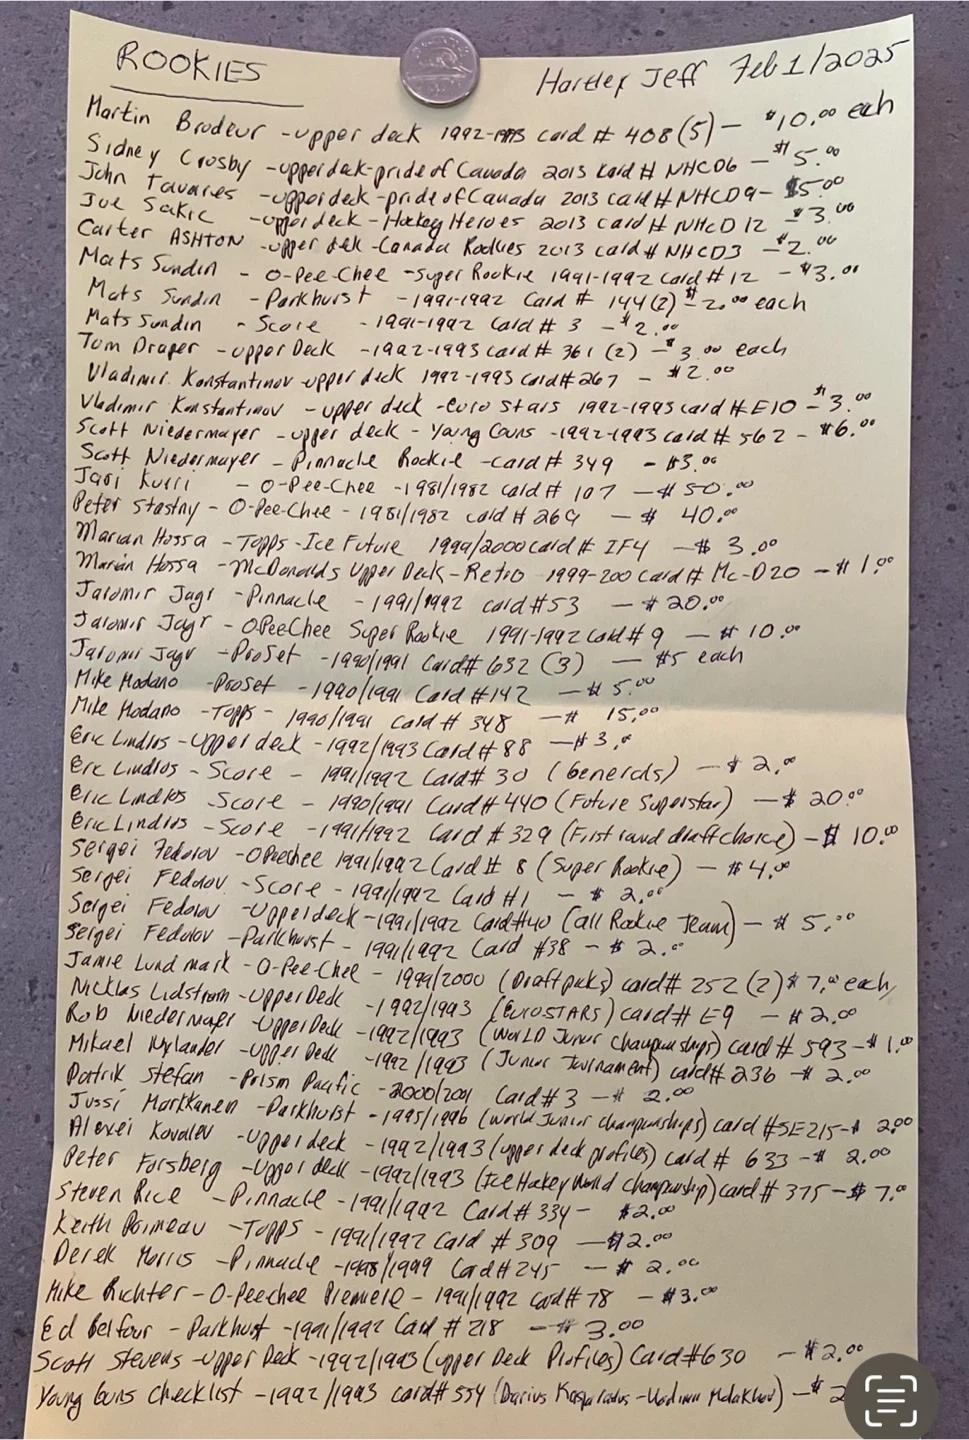 ROOKIES
Hartley Jeff Feb 1/2025
Martin Brodeur - upper deck 1992-1993 card # 408 (5) - $10.00 each
Sidney Crosby - upperdeck-pride of Canada 2013 card # NHCD6 - $5.00
John Tavares - upperdeck-pride of Canada 2013 card # NHCD9 - $5.00
Joe Sakic - upperdeck - Hockey Heroes 2013 card # NHCD 12 - $3.00
Carter ASHTON - upper dek - Canada Rookies 2013 card # NHCD3 - $2.00
Mats Sundin - O-Pee-Chee - Super Rookie 1991-1992 Card # 12 - $3.00
Mats Sundin - Parkhurst - 1991-1992 Card # 144 (2) $2.00 each
Mats Sundin - Score - 1991-1992 Card # 3 - $2.00
Tom Draper - upper Deck - 1992-1993 card # 361 (2) - $3.00 each
Vladimir Konstantinov - upper deck 1992-1993 Card # 267 - $2.00
Vladimir Konstantinov - upper deck - euro Stars 1992-1993 card # E10 - $3.00
Scott Niedermayer - upper deck - Young Guns - 1992-1993 card # 562 - $6.00
Scott Niedermayer - Pinnacle Rookie - card # 349 - $3.00
Jari Kurri - O-Pee-Chee - 1981/1982 card # 107 - $50.00
Peter Stastny - O-Pee-Chee - 1981/1982 card # 269 - $40.00
Marian Hossa - Topps - Ice Future 1999/2000 card # IF4 - $3.00
Marian Hossa - McDonalds Upper Deck - Retro 1999-200 Card # Mc-D20 - $1.00
Jaromir Jagr - Pinnacle - 1991/1992 card # 53 - $20.00
Jaromir Jagr - OPeeChee Super Rookie 1991-1992 card # 9 - $10.00
Jaromir Jagr - ProSet - 1990/1991 Card # 632 (3) - $5 each
Mike Modano - ProSet - 1990/1991 Card # 142 - $5.00
Mike Modano - Topps - 1990/1991 Card # 348 - $15.00
Eric Lindros - Upper deck - 1992/1993 Card # 88 - $3.00
Eric Lindros - Score - 1991/1992 Card # 30 (Generals) - $2.00
Eric Lindros - Score - 1990/1991 Card # 440 (Future Superstar) - $20.00
Eric Lindros - Score - 1991/1992 Card # 329 (First round draft choice) - $10.00
Sergei Fedorov - OPeechee 1991/1992 Card # 8 (Super Rookie) - $4.00
Sergei Fedorov - Score - 1991/1992 Card # 1 - $2.00
Sergei Fedorov - Upperdeck - 1991/1992 Card # 40 (All Rookie Team) - $5.00
Sergei Fedorov - Parkhurst - 1991/1992 Card # 38 - $2.00
Jamie Lundmark - O-Pee-Chee - 1999/2000 (Draft picks) card # 252 (2) $7.00 each
Nicklas Lidstrom - Upper Deck - 1992/1993 (EuroSTARS) card # E9 - $2.00
Rob Niedermayer - Upper Deck - 1992/1993 (WORLD Junior Championships) card # 593 - $1.00
Mikael Nylander - Upper Deck - 1992/1993 (Junior Tournament) card # 236 - $2.00
Patrik Stefan - Prism Pacific - 2000/2001 Card # 3 - $2.00
Jussi Markkanen - Parkhurst - 1995/1996 (World Junior championships) card # SE215 - $2.00
Alexei Kovalev - Upper deck - 1992/1993 (upper deck profiles) card # 633 - $2.00
Peter Forsberg - Upper deck - 1992/1993 (Ice Hockey World Championship) card # 375 - $7.00
Steven Rice - Pinnacle - 1991/1992 Card # 334 - $2.00
Keith Primeau - Topps - 1991/1992 Card # 309 - $2.00
Derek Morris - Pinnacle - 1998/1999 Card # 245 - $2.00
Mike Richter - O-Peechee Premiere - 1991/1992 Card # 78 - $3.00
Ed Belfour - Parkhust - 1991/1992 Card # 218 - $3.00
Scott Stevens - Upper Deck - 1992/1993 (upper Deck Profiles) Card # 630 - $2.00
Young Guns Checklist - 1992/1993 card # 554 (Darius Kasparaitis - Vladimir Malakhov) - $2